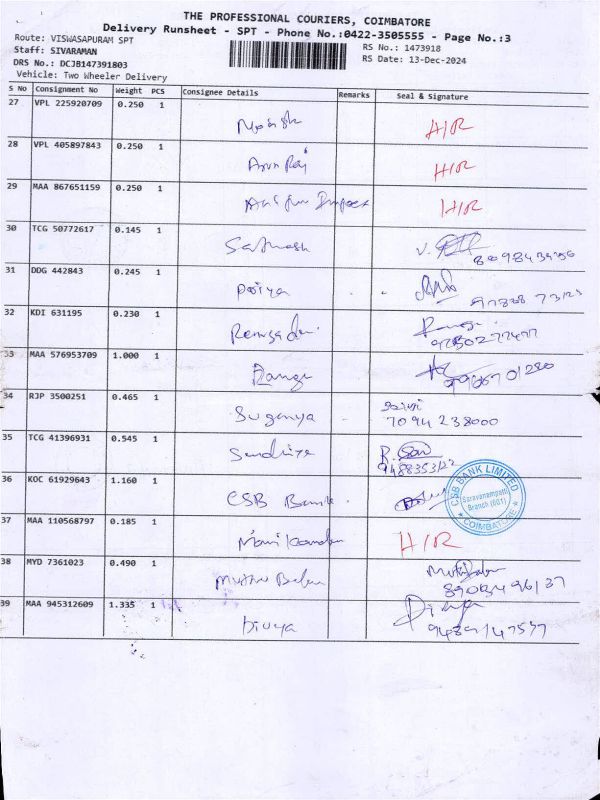 THE PROFESSIONAL COURIERS, COIMBATORE
Delivery Runsheet - SPT - Phone No.:0422-3505555 - Page No.:3
Route: VISWASAPURAM SPT
RS No.: 1473918
Staff: SIVARAMAN
RS Date: 13-Dec-2024
DRS No.: DCJB147391803
Vehicle: Two Wheeler Delivery
S No Consignment No Weight PCS Consignee Details Remarks Seal & Signature
27 VPL 225920709 0.250 1
H/R
28 VPL 405897843 0.250 1
Arun Raj H/R
29 MAA 867651159 0.250 1
H/R
30 TCG 50772617 0.145 1
Sathish
31 DDG 442843 0.245 1
Priya
32 KDI 631195 0.230 1
33 MAA 576953709 1.000 1
Ranga
34 RJP 3500251 0.465 1
Suganya 7094238000
35 TCG 41396931 0.545 1
36 KOC 61929643 1.160 1
CSB Bank
CSB BANK LIMITED
Saravanampatti
Branch (601)
COIMBATORE
37 MAA 110568797 0.185 1
Manikandan H/R
38 MYD 7361023 0.490 1
Muthu Balan
39 MAA 945312609 1.335 1
Divya Divya